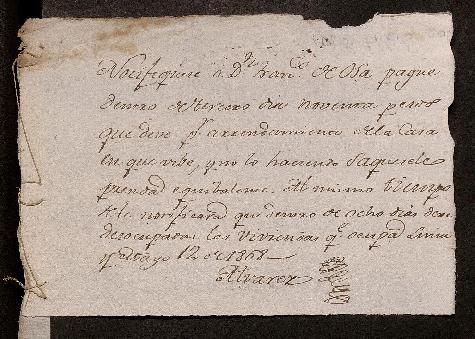 Notifiquese a Dn. Franco. de Osa pague
dentro de tercero dia noventa pesos
que deve pr. arrendamiento de la Casa
en que vibe, y no lo haciendo saquesele
prendas equibalente. Al mismo tiempo
se le notificará que dentro de ocho dias
desocupada las Viviendas qe. ocupa
Mayo 12 de 1868
Alvarez